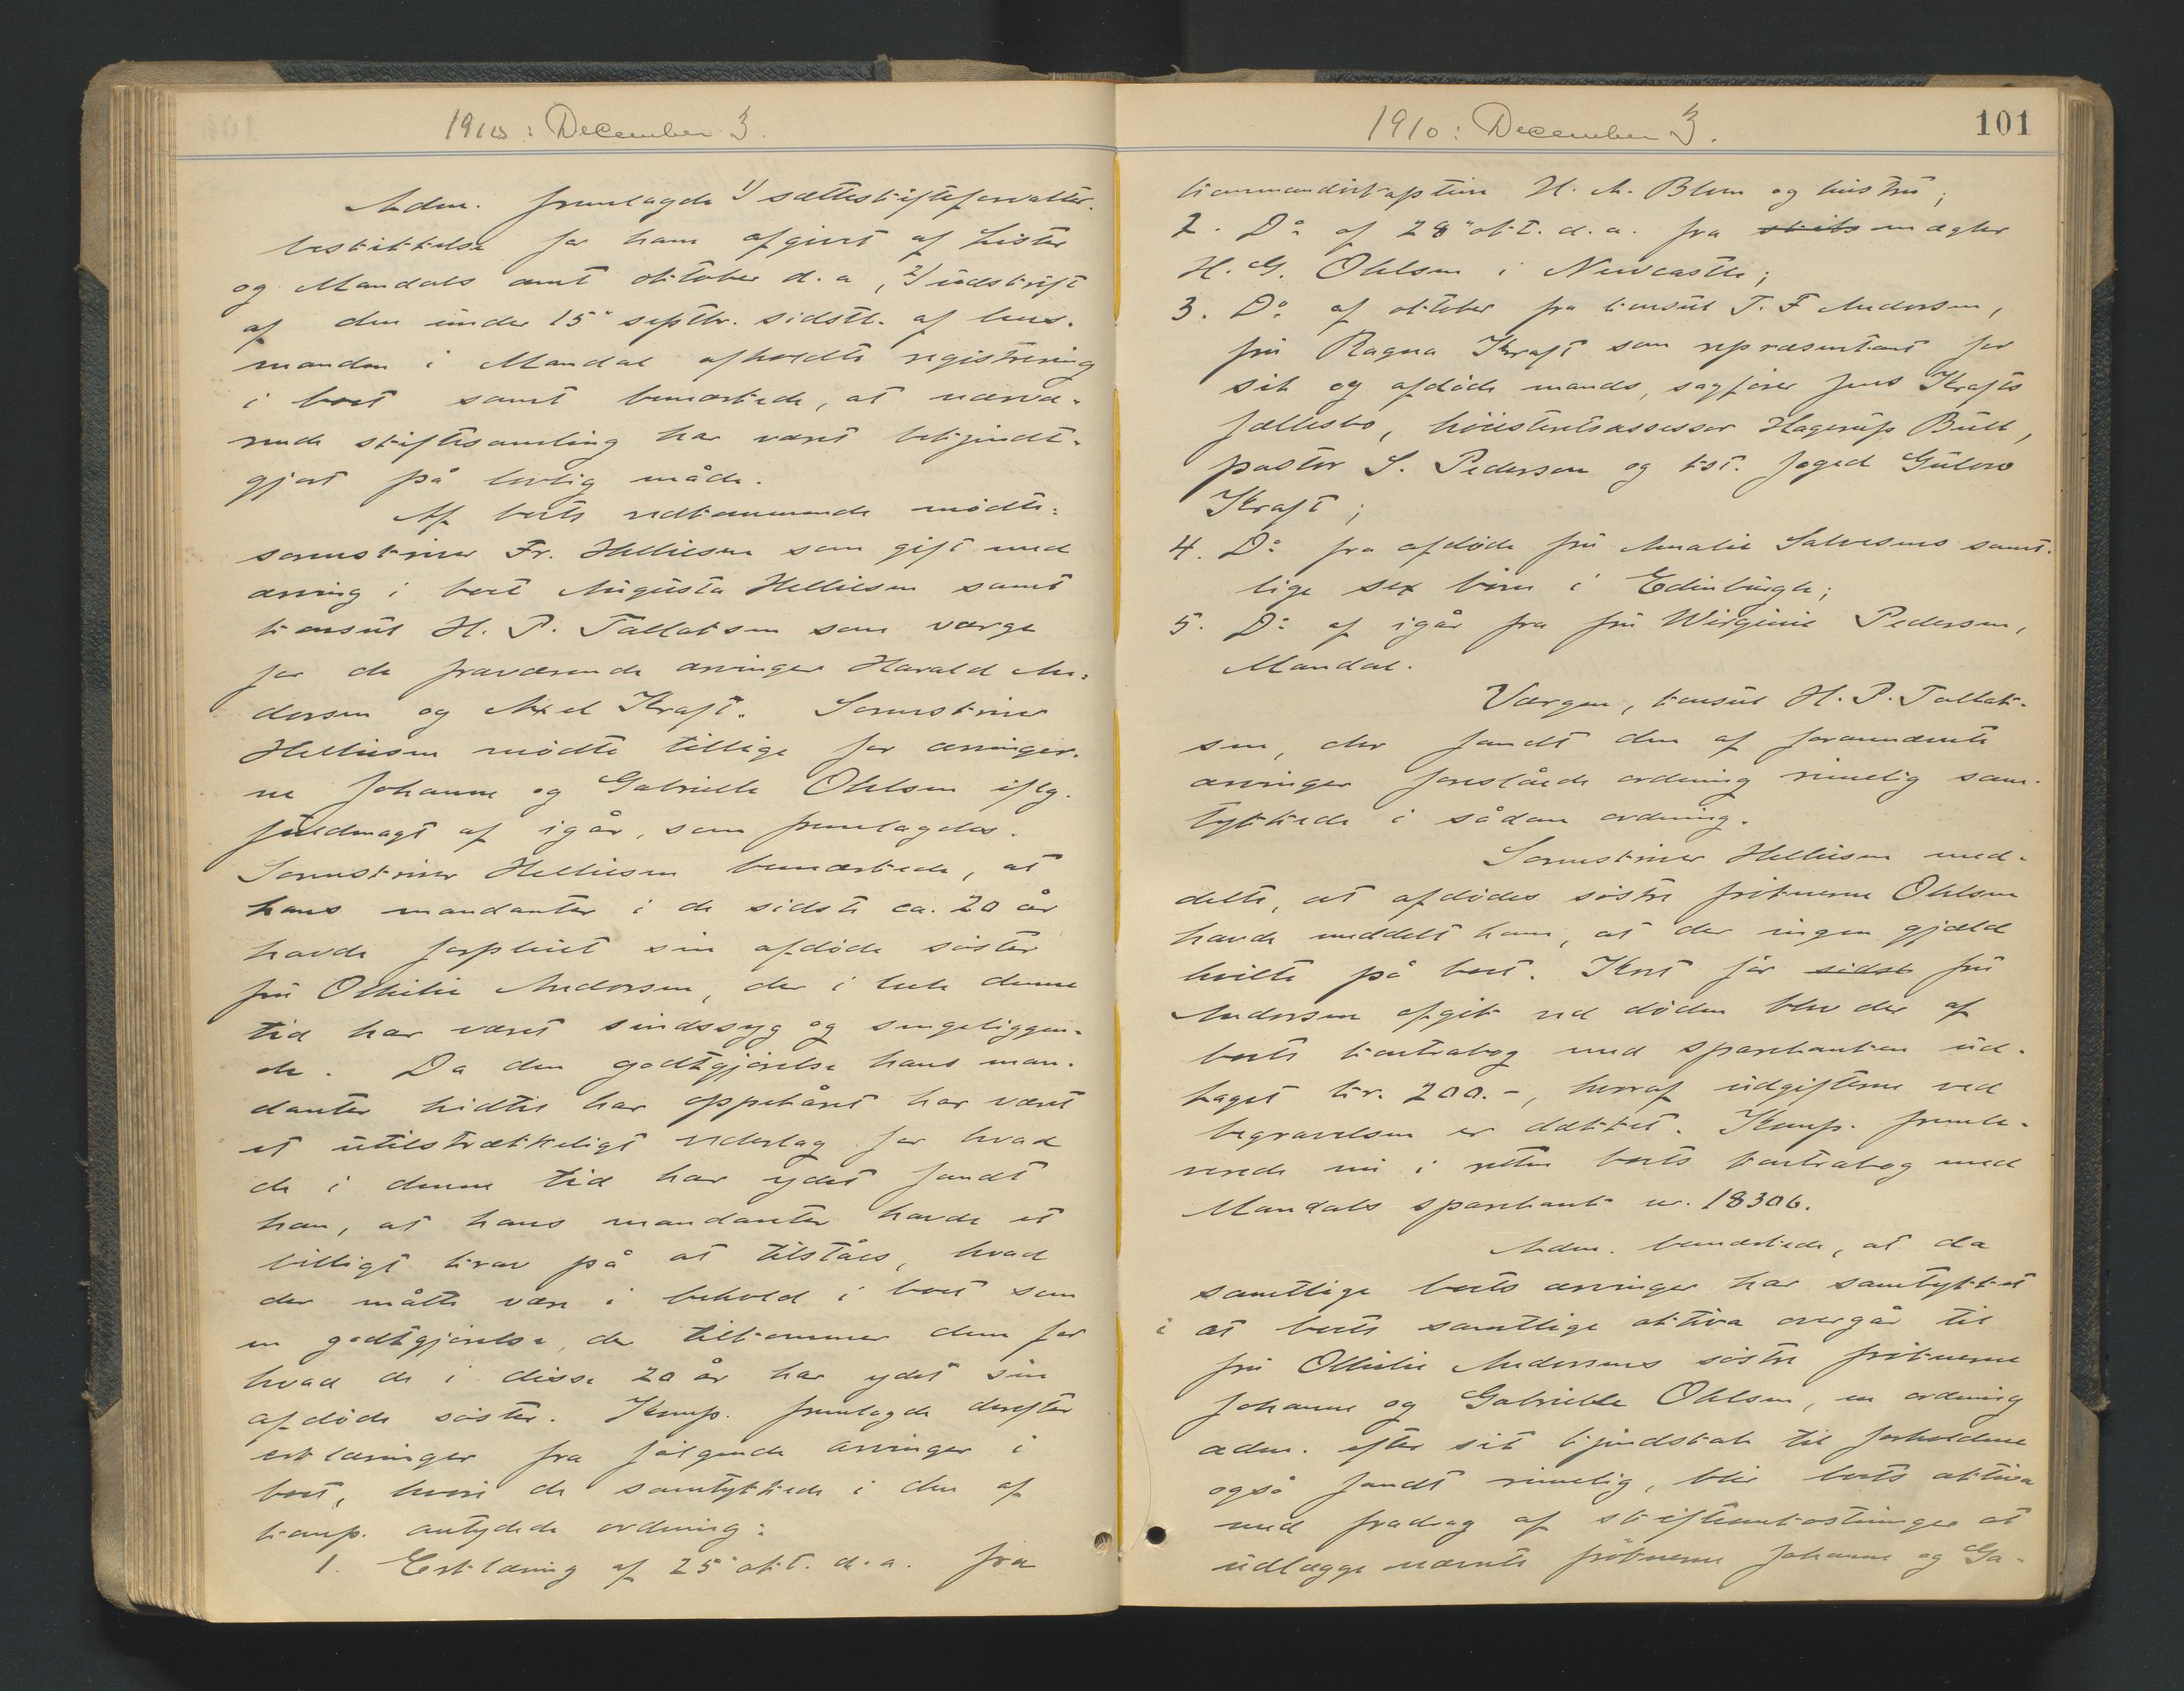 1910: December 3.
Adm. fremlagde 1) sætteskifteforvalter-
beskikkelse for ham afgivet af Lister
og Mandals amt oktober d.a., 2) udskrift
af den under 15" septbr. sidstl. af lens-
manden i Mandal afholdte registrering
i boet samt bemærkede, at nærvæ-
rende skiftesamling har været bekjendt-
gjort på lovlig måde.
Af boets vedkommende mødte:
sorenskriver Fr. Helliesen som gift med
arving i boet Augusta Helliesen samt
konsul H. P. Tallaksen som værge
for de fraværende arvinger Harald An-
dersen og Axel Kraft. Sorenskriver
Helliesen mødte tillige for arvinger-
ne Johanne og Gabrielle Ohlsen iflg.
fuldmagt af igår, som fremlagdes.
Sorenskriver Helliesen bemærkede, at
hans mandanter i de sidste ca. 20 år
havde forpleiet sin afdøde søster
fru Othilie Andersen, der i hele denne
tid har været sindssyg og sengeliggen-
de. Da den godtgjørelse hans man-
danter hidtil har oppebåret har været
et utilstrækkeligt vederlag for hvad
de i denne tid har ydet fandt
han, at hans mandanter havde et
billigt krav på at tilståes, hvad
der måtte være i behold i boet som
en godtgjørelse, der tilkommer dem for
hvad de i disse 20 år har ydet sin
afdøde søster. Komp. fremlagde derefter
erklæringer fra følgende arvinger i
boet, hvori de samtykkede i den af
komp. antydede ordning:
1. Erklæring af 25" okt. d.a. fra
1910: December 3.
101
kommandørkaptein H. A. Blom og hustru;
2. Do af 28" okt. d.a. fra skibs mægler
H. G. Ohlsen i Newcastle;
3. Do af oktober fra konsul T. F Andersen,
fru Ragna Kraft som repræsentant for
sit og afdøde mands, sagfører Jens Krafts
fællesbo, høiesteretsassessor Hagerup Bull,
pastor S. Pedersen og kst. foged Gulow
Kraft;
4. Do fra afdøde fru Amalie Salvesens samt-
lige sex børn i Edinburgh;
5. Do af igår fra fru Wirginie Pedersen,
Mandal.
Værgen, konsul H. P. Tallak-
sen, der fandt den af forannævnte
arvinger foreslåede ordning rimelig sam-
tykkede i sådan ordning.
Sorenskriver Helliesen med-
delte, at afdødes søstre frøknerne Ohlsen
havde meddelt ham, at der ingen gjæld
hvilte på boet. Kort før sidst fru
Andersen afgik ved døden blev der af
boets kontrabog med sparebanken ud-
taget kr. 200.-, hvoraf udgifterne ved
begravelsen er dækket. Komp. fremle-
verede nu i retten boets kontrabog med
Mandals sparebank nr. 18306.
Adm. bemærkede, at da
samtlige boets arvinger har samtykket
i at boets samtlige aktiva overgår til
fru Othilie Andersens søstre frøknerne
Johanne og Gabrielle Ohlsen, en ordning
adm. efter sit kjendskab til forholdene
også fandt rimelig, blir boets aktiva
med fradrag af skifteomkostninger at
udlægge nævnte frøknerne Johanne og Ga-